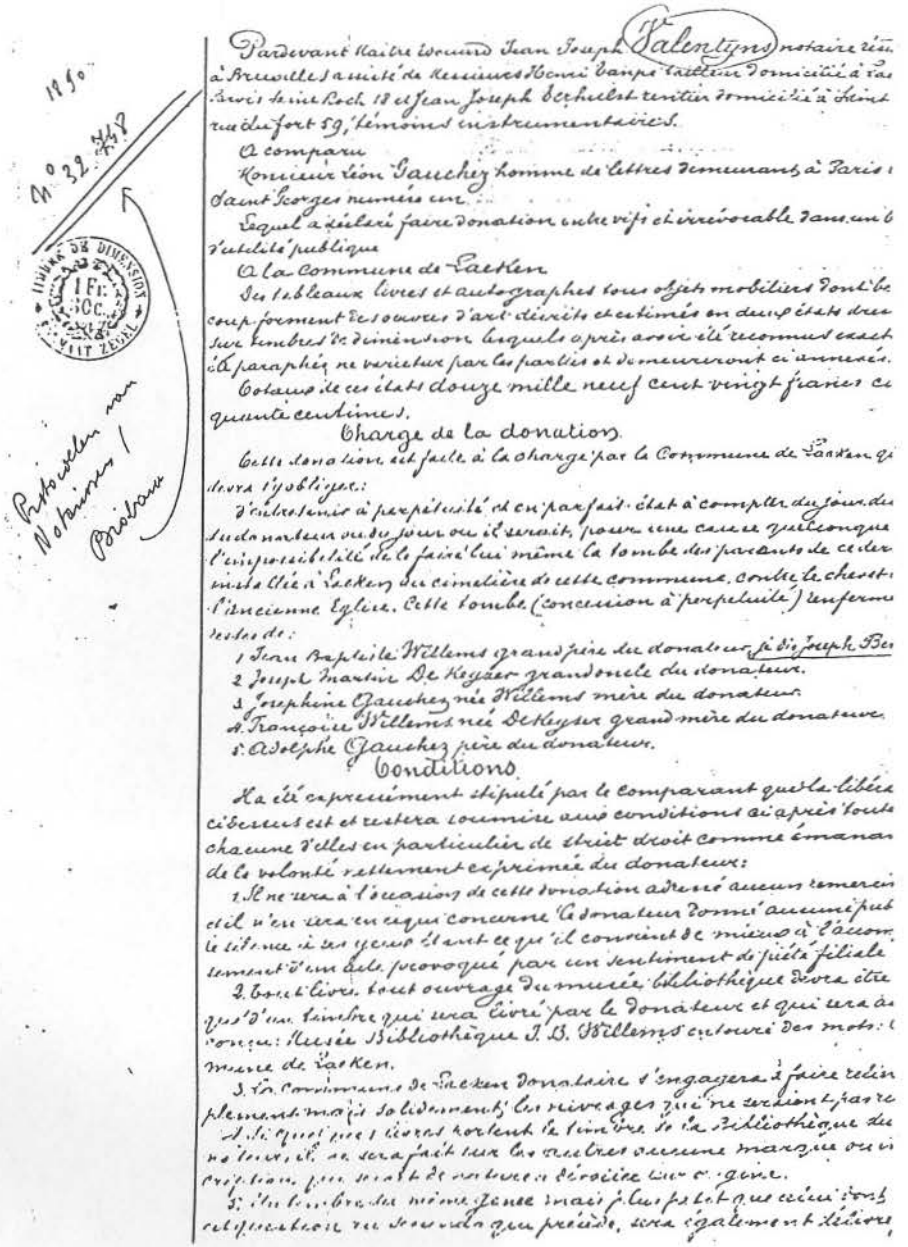 1890
N° 32.748
TIMBRE DE DIMENSION
1 Fr.
Protocolen van
Notarissen /
Brabant
Pardevant Maitre Edouard Jean Joseph Valentyns notaire rési
à Bruxelles assisté de Messieurs Henri tailleur domicilié à Lae
Parvis Saint Roch 18 et Jean Joseph Verhulst rentier domicilié à Saint
rue du fort 59, témoins instrumentaires.
A comparu
Monsieur Léon Gauchez homme de lettres demeurant à Paris
Saint Georges numéro un
Lequel a déclaré faire donation entre vifs et irrévocable dans un b
d'utilité publique
A la Commune de Laeken
Des tableaux livres et autographes tous objets mobiliers dont be
coup forment des œuvres d'art décrits et estimés en deux états dres
sur timbres de dimension lesquels après avoir été reconnus exact
été paraphés ne varietur par les parties et demeureront ci annexés.
Totaux de ces états douze mille neuf cent vingt francs ci
quante centimes.
Charge de la donation
Cette donation est faite à la charge par la Commune de Laeken qi
devra s'y obliger:
D'entretenir à perpétuité et en parfait état à compter du jour du
du donateur ou du jour ou il serait, pour une cause quelconque
l'impossibilité de le faire lui même la tombe des parents de ce der
installée à Laeken au cimetière de cette commune, contre le chevet
l'ancienne Eglise. Cette tombe (concession à perpétuité) renferme
restes de:
1 Jean Baptiste Willems grand père du donateur, je dis Joseph Ber
2 Joseph Martin De Keyzer grand oncle du donateur.
3 Josephine Gauchez née Willems mère du donateur
4. Françoise Willems née De Keyser grand mère du donateur.
5. Adolphe Gauchez père du donateur.
Conditions
Il a été expressément stipulé par le comparant que la libéra
ci dessus est et restera soumise aux conditions ci après toute
chacune d'elles en particulier de strict droit comme émanan
de la volonté nettement exprimée du donateur:
1. Il ne sera à l'occasion de cette donation adressé aucun remercie
et il n'en sera en ce qui concerne le donateur donné aucune pub
le silence à ses yeux étant ce qu'il convient de mieux à l'accom
sement d'un acte provoqué par un sentiment de piété filiale
2. Tout livre tout ouvrage du musée bibliothèque devra être
qué d'un timbre qui sera livré par le donateur et qui sera ai
conçu: Musée Bibliothèque J. B. Willems entouré des mots:
mune de Laeken.
3. La Commune de Laeken donataire s'engagera à faire relier
plement mais solidement les ouvrages qui ne seraient pas re
4. Si quelques livres portent le timbre de la Bibliothèque du
nateur, il ne sera fait sur les autres aucune marque ou in
cription
5. Un timbre du même genre mais plus petit que celui dont
est question au qui précède, sera également délivré